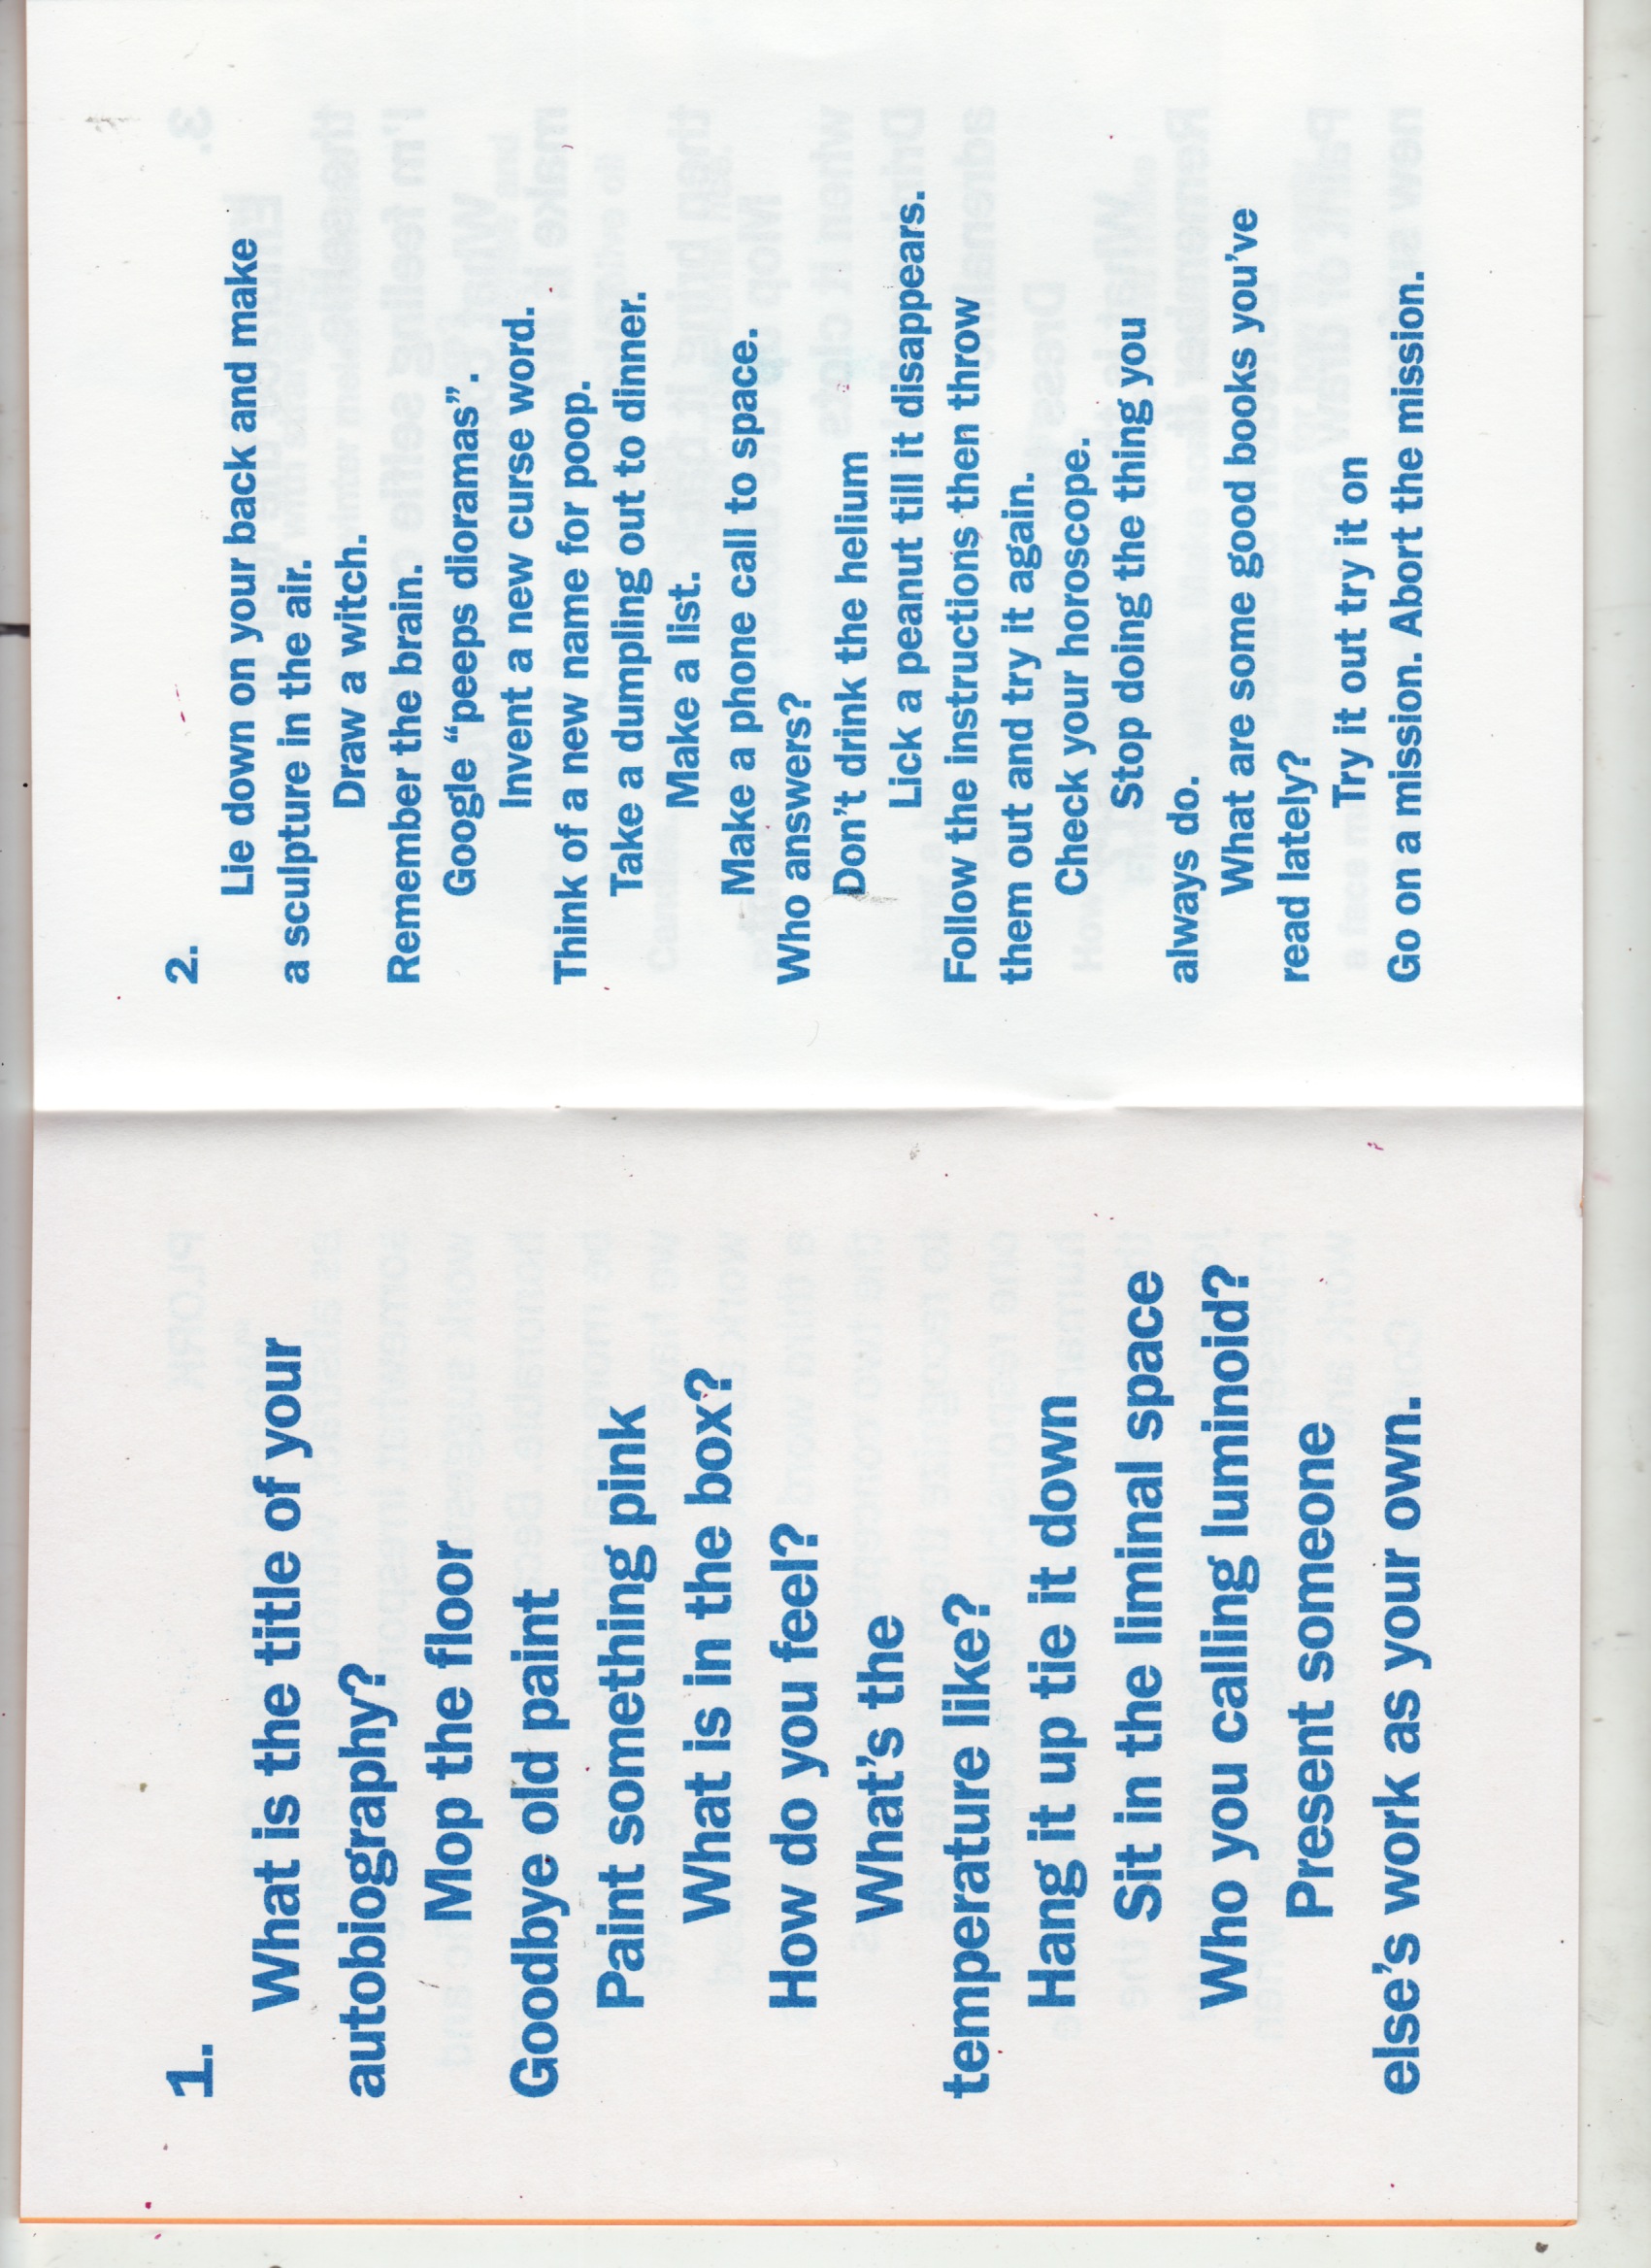 1.
What is the title of your
autobiography?
Mop the floor
Goodbye old paint
Paint something pink
What is in the box?
How do you feel?
What's the
temperature like?
Hang it up tie it down
Sit in the liminal space
Who you calling luminoid?
Present someone
else's work as your own.
2.
Lie down on your back and make
a sculpture in the air.
Draw a witch.
Remember the brain.
Google “peeps dioramas”.
Invent a new curse word.
Think of a new name for poop.
Take a dumpling out to dinner.
Make a list.
Make a phone call to space.
Who answers?
Don't drink the helium
Lick a peanut till it disappears.
Follow the instructions then throw
them out and try it again.
Check your horoscope.
Stop doing the thing you
always do.
What are some good books you've
read lately?
Try it out try it on
Go on a mission. Abort the mission.